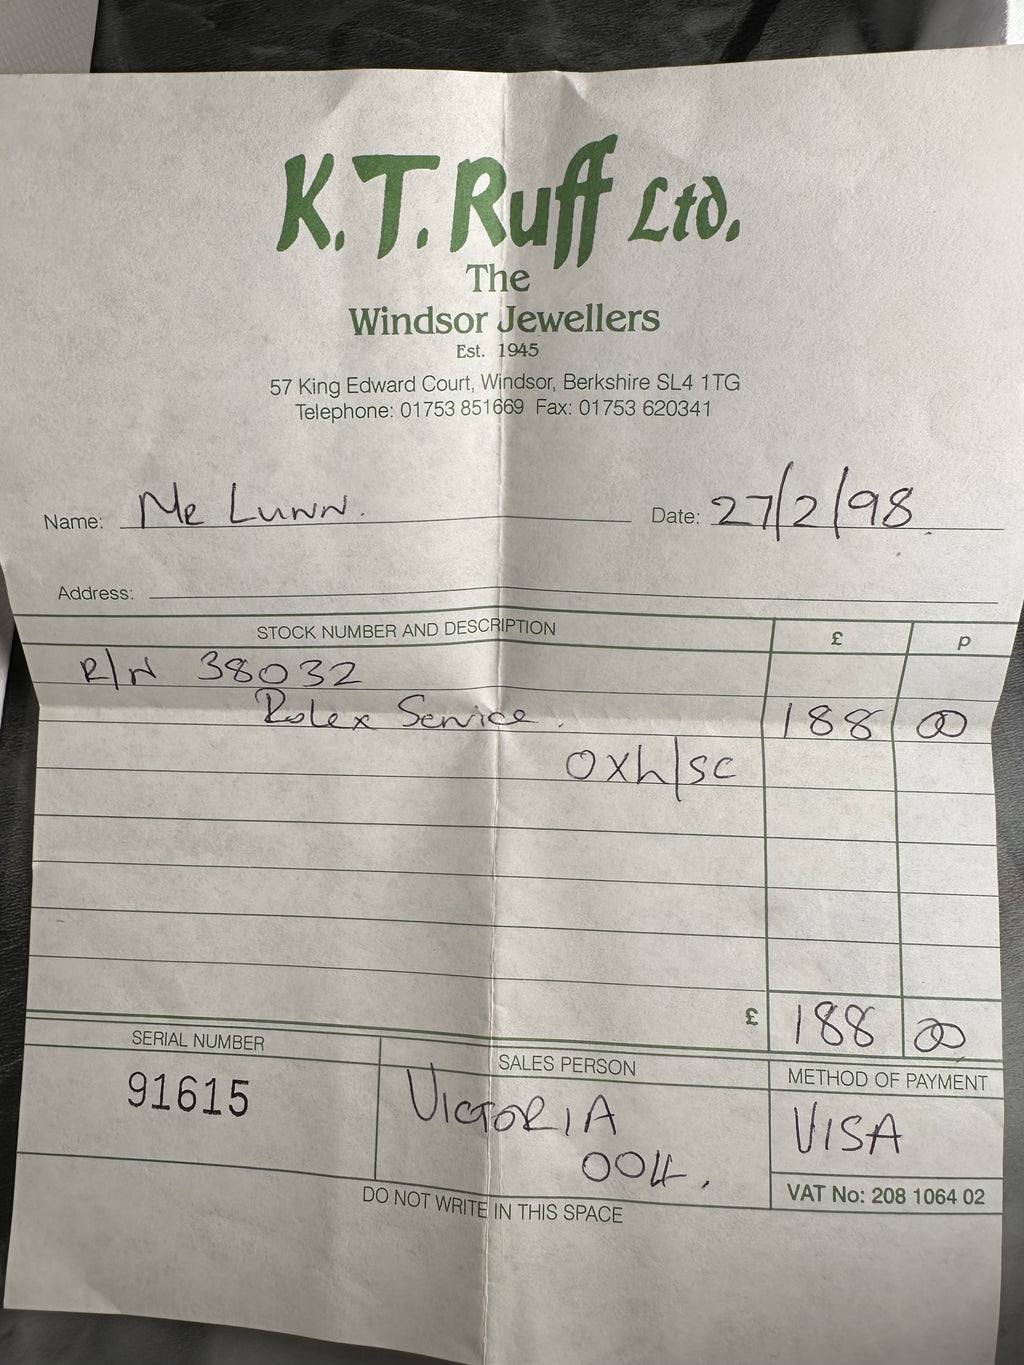 K.T. Ruff Ltd.
The
Windsor Jewellers
Est. 1945
57 King Edward Court, Windsor, Berkshire SL4 1TG
Telephone: 01753 851669 Fax: 01753 620341
Name: Mr Lunn. Date: 27/2/98.
Address:
STOCK NUMBER AND DESCRIPTION £ p
R/N 38032
Rolex Service. 188 00
OXh/SC
£ 188 00
SERIAL NUMBER SALES PERSON METHOD OF PAYMENT
91615 VICTORIA VISA
004.
VAT No: 208 1064 02
DO NOT WRITE IN THIS SPACE